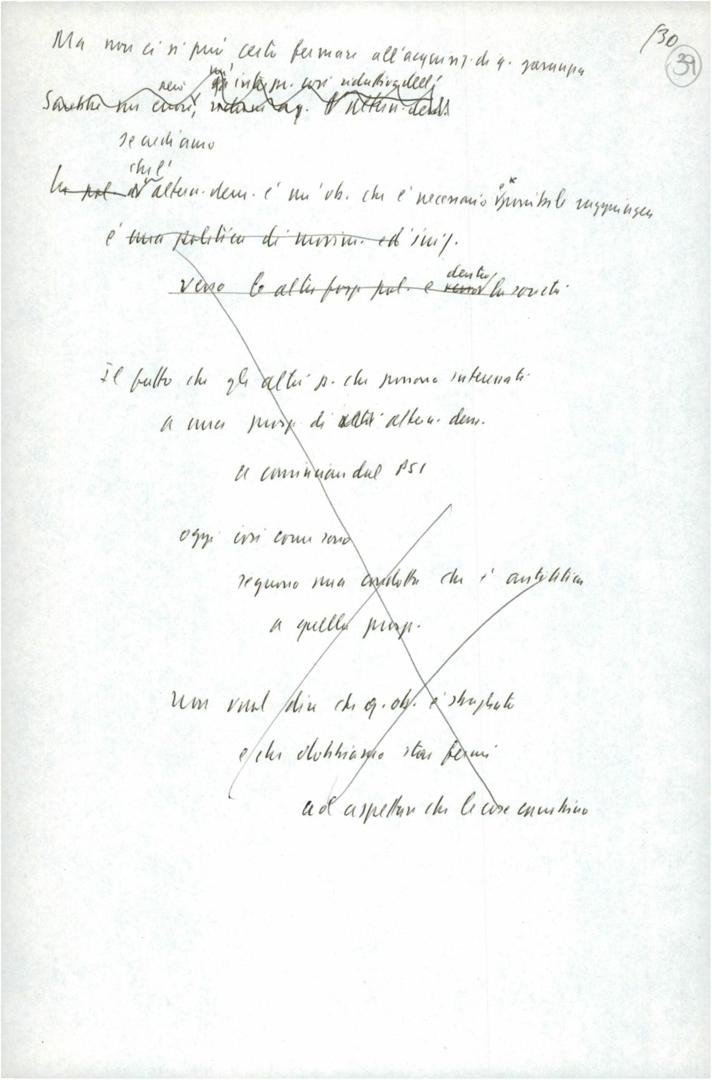 /30
39
Ma non ci si può certo fermare all'acquisiz. di q. garanzia
un'interpr. così riduttiva dell'
Sarebbe un errore,
se crediamo
che l'
La pol. di altern. dem. è un ob. che è necessario e possibile raggiungere
è una politica di movim. ed iniz.
dentro
verso le altre forze pol. e verso la società
Il fatto che gli altri p. che possono interessati
a una prosp. di altri altern. dem.
a cominciare dal PSI
oggi così come sono
seguono una condotta che è antitetica
a quella prosp.
Non vuol dire che q. ob. è sbagliato
e che dobbiamo star fermi
ad aspettare che le cose cambino